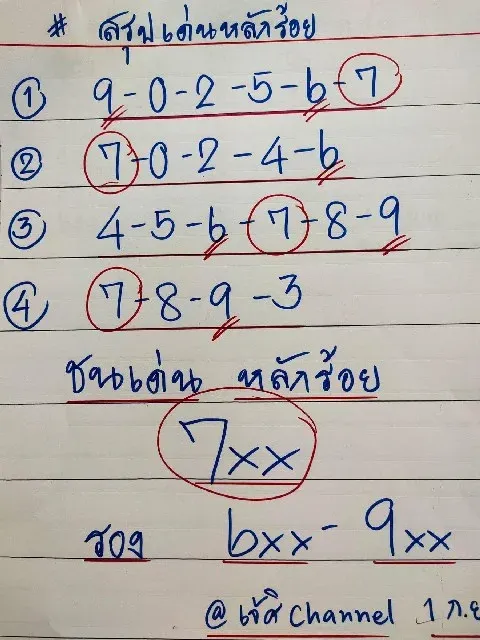 # สรุปเด่นหลักร้อย
① 9-0-2-5-6-7
② 7-0-2-4-6
③ 4-5-6-7-8-9
④ 7-8-9-3
ชนเด่น หลักร้อย
7xx
รอง 6xx - 9xx
@ เจ๊ศิ Channel 1 ก.ย